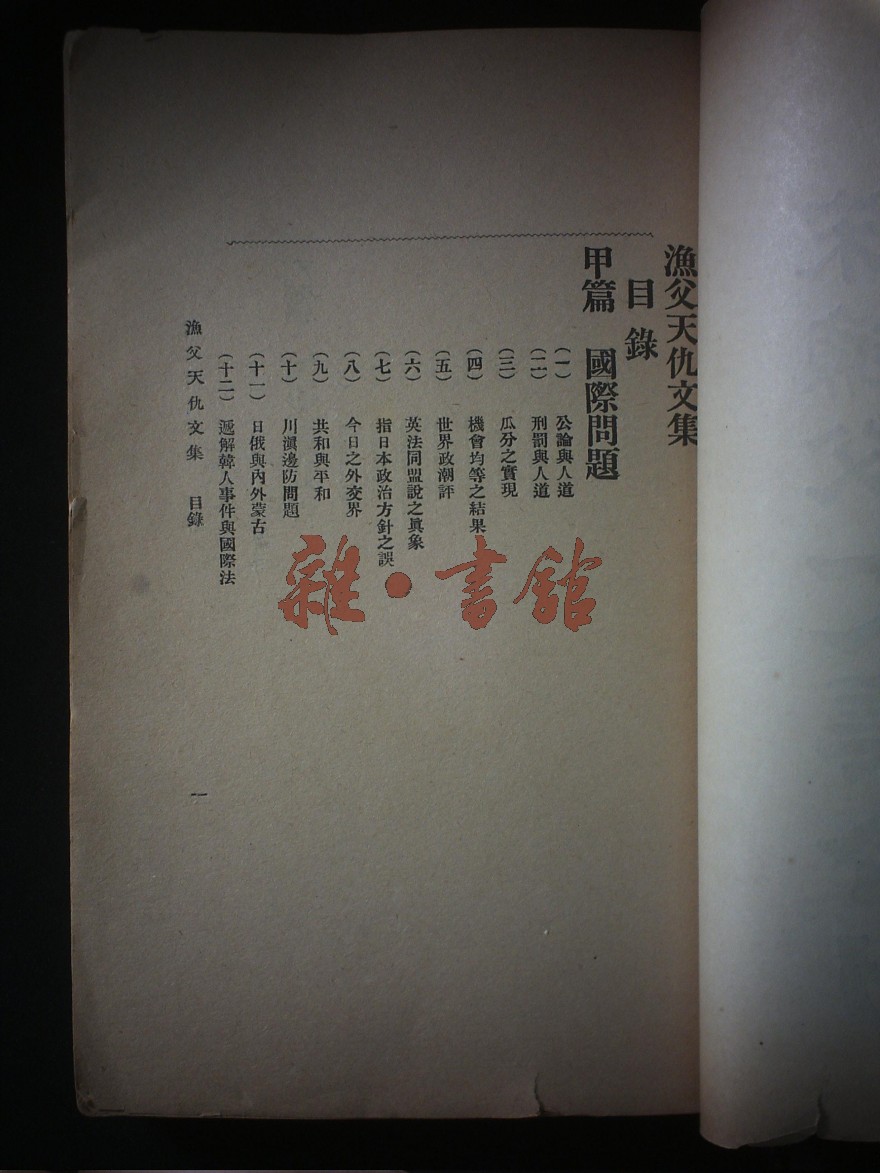 漁父天仇文集
目錄
甲篇 國際問題
(一) 公論與人道
(二) 刑罰與人道
(三) 瓜分之實現
(四) 機會均等之結果
(五) 世界政潮評
(六) 英法同盟說之眞象
(七) 指日本政治方針之誤
(八) 今日之外交界
(九) 共和與平和
(十) 川滇邊防問題
(十一) 日俄與內外蒙古
(十二) 遞解韓人事件與國際法
漁父天仇文集 目錄
一
雜·書館